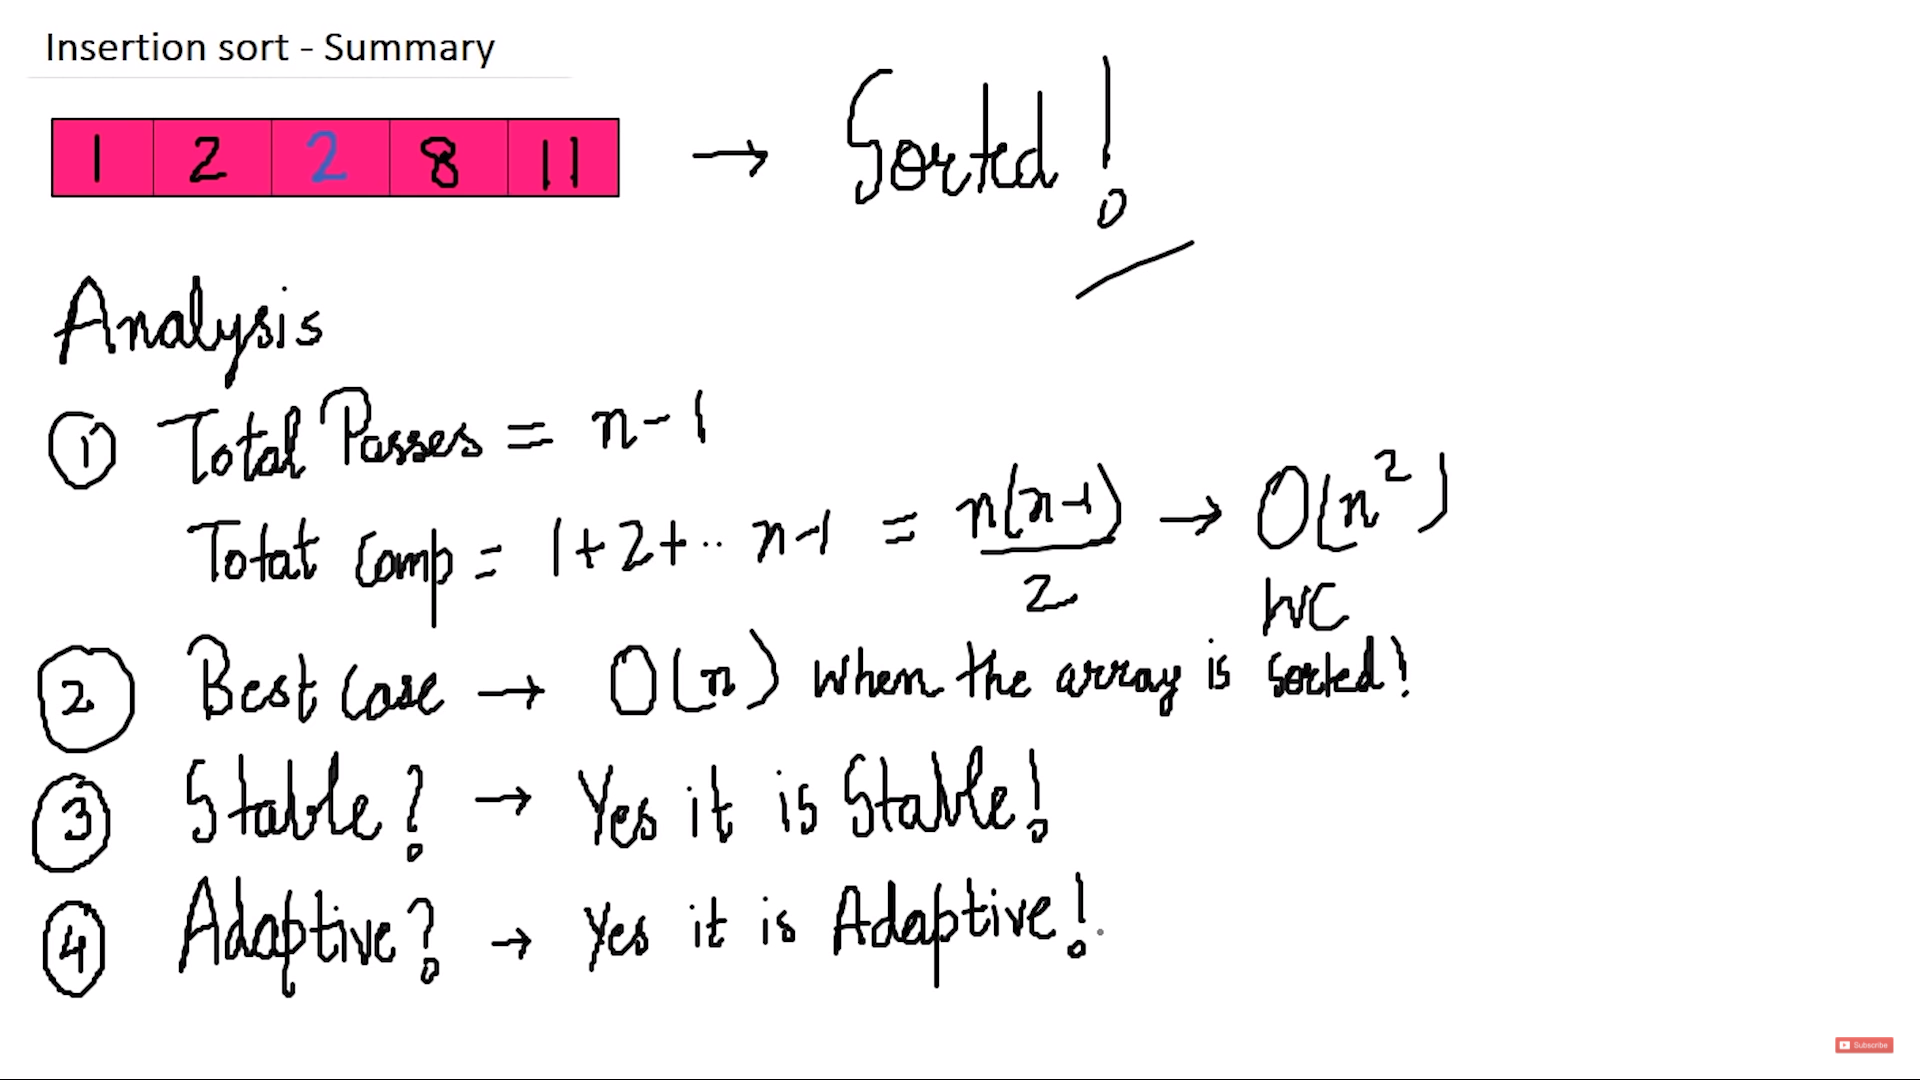 Insertion sort - Summary
1 2 2 8 11 → Sorted!
Analysis
① Total Passes = n-1
Total Comp = 1+2+.. n-1 = n(n-1)/2 → O(n²)
WC
② Best Case → O(n) when the array is sorted!
③ Stable? → Yes it is Stable!
④ Adaptive? → Yes it is Adaptive!
Subscribe